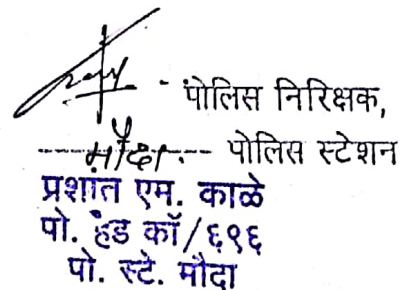 - पोलिस निरिक्षक,
मौदा. -- पोलिस स्टेशन
प्रशांत एम. काळे
पो. हेड कॉ/६९६
पो. स्टे. मौदा